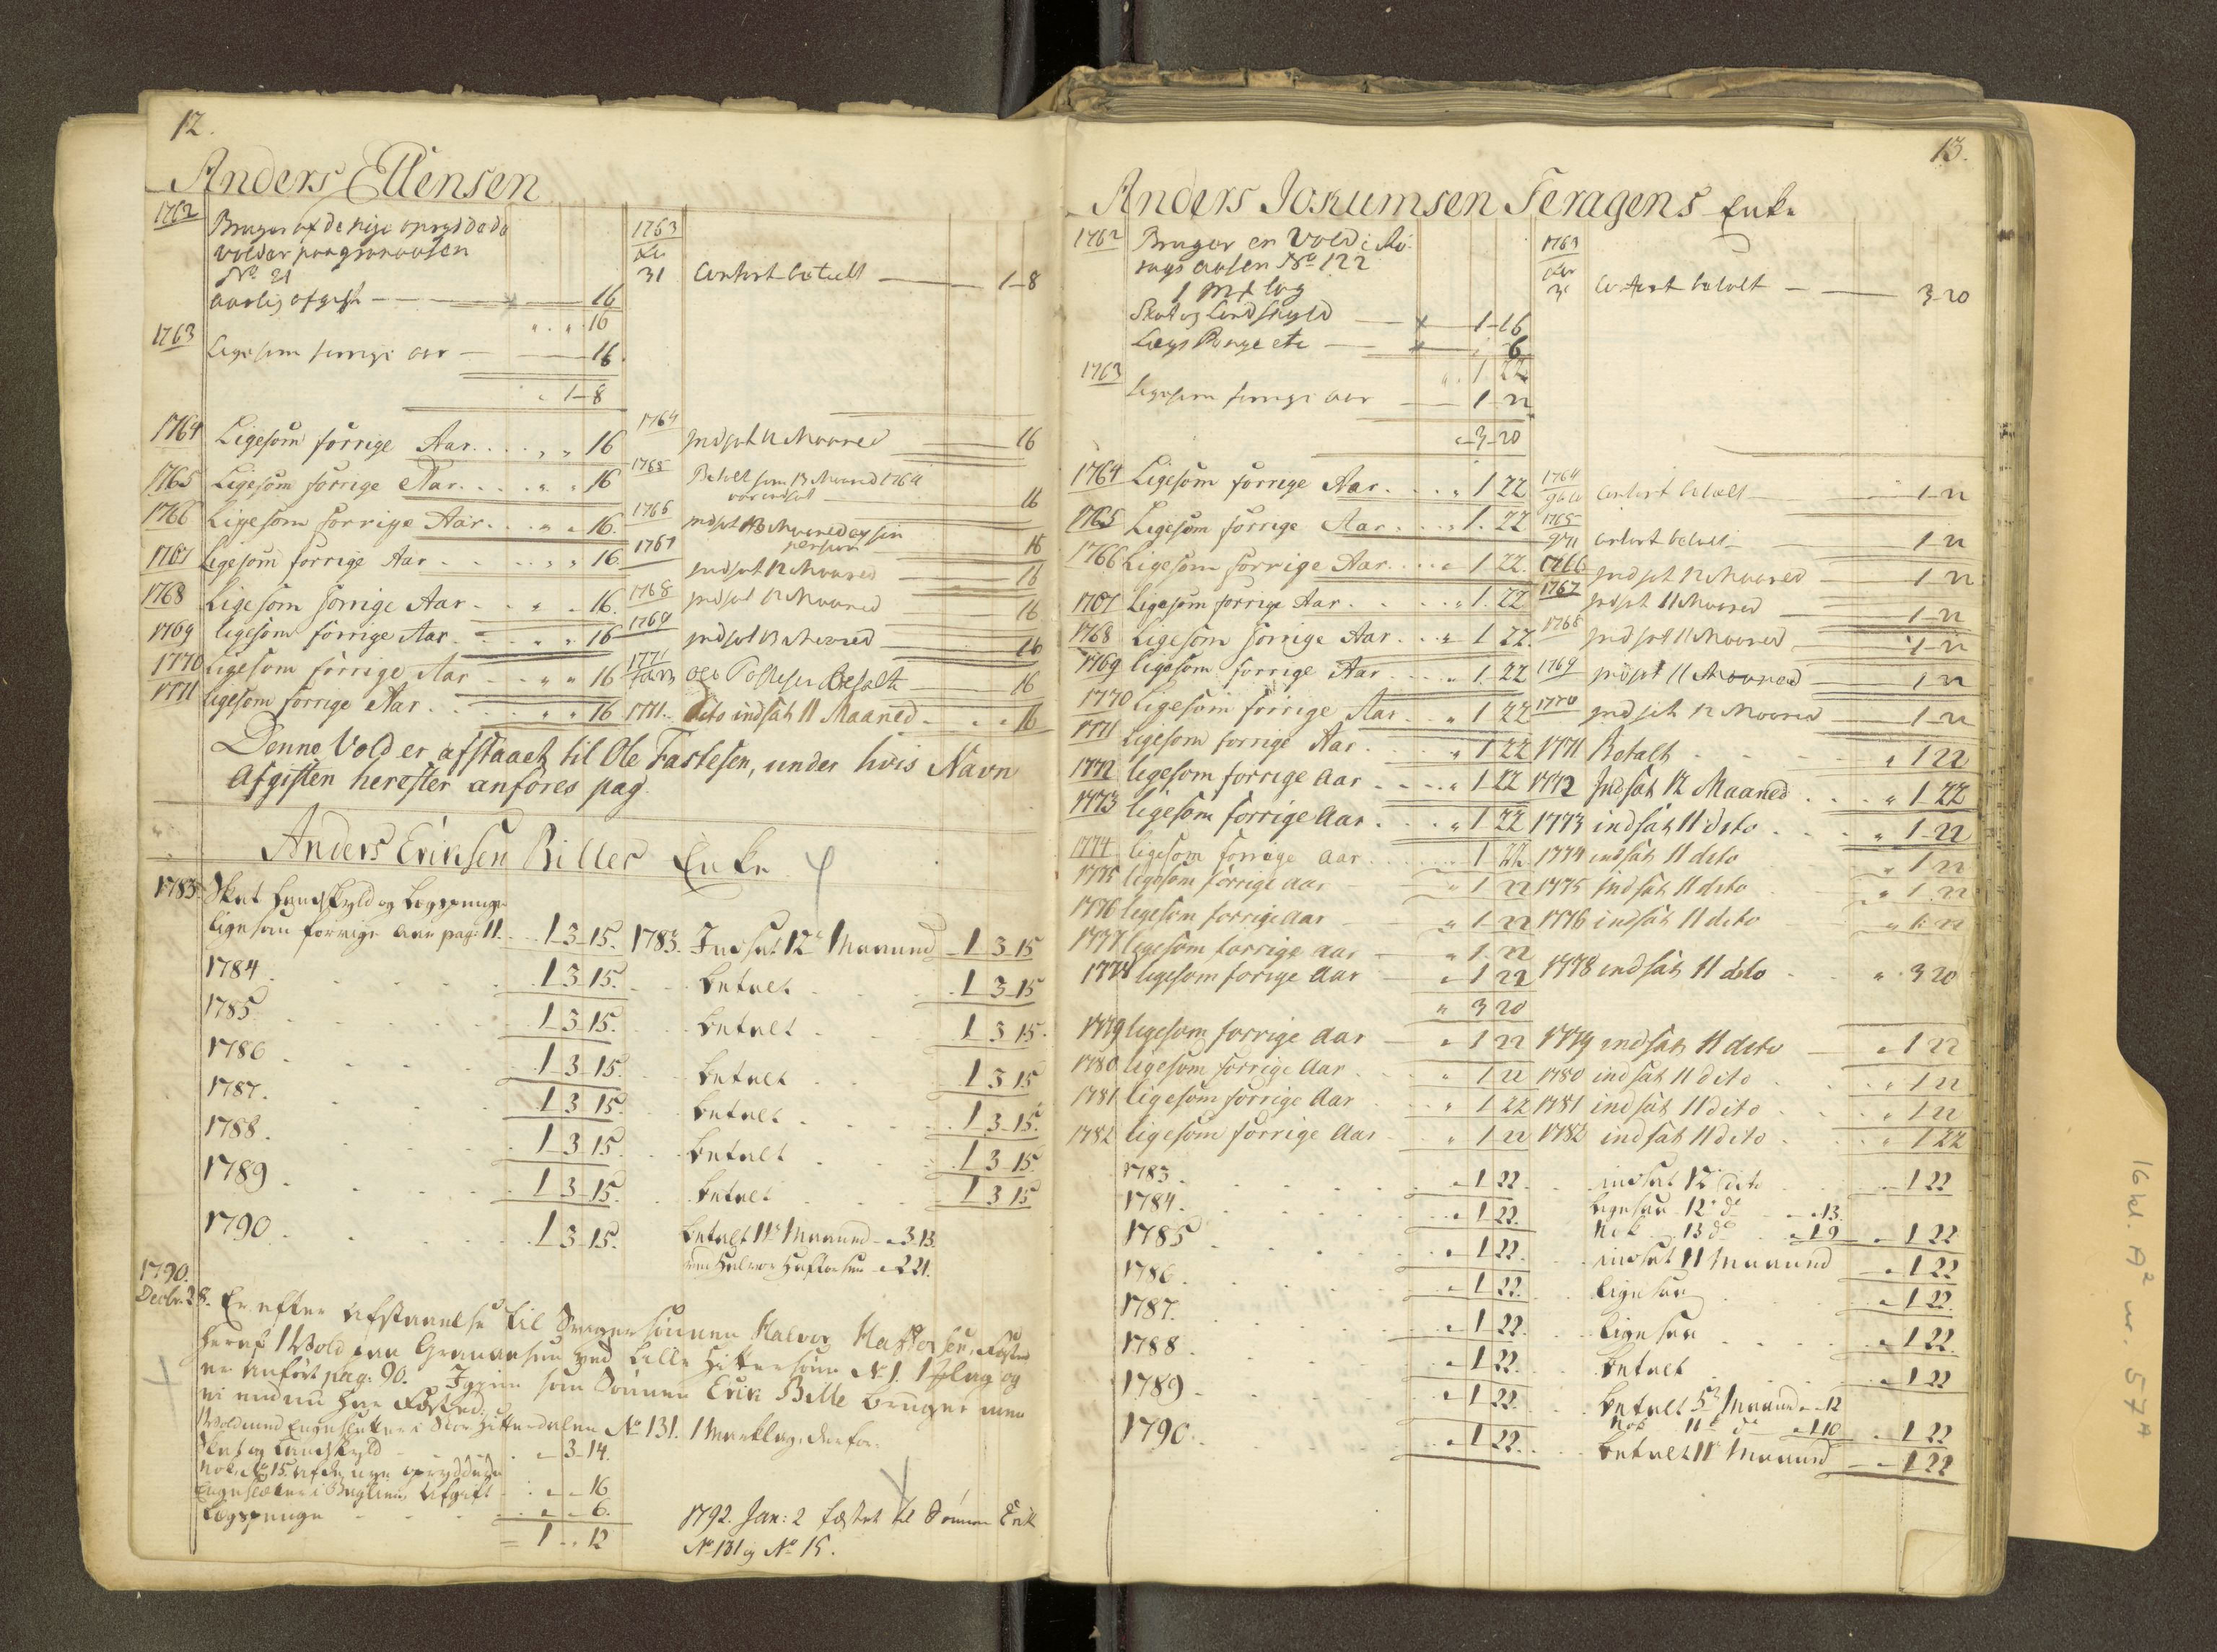 12.
Anders Ellensen
1762 Bruger af de nye opryddede
volder paa granaasen
No. 21
aarlig afgift 16
" " 16
1763 Ligesom forrige aar 16
" 1-8
1763
Xbr
31 Contant betalt 1-8
1764 Ligesom forrige Aar " " 16
1764 indsat 12 Maaned 16
1765 Ligesom forrige Aar " " 16
1765 Betalt som 13 Maaned 1764
var indsat 16
1766 Ligesom forrige Aar " " 16
1766 indsat 13 Maaned 16
1767 Ligesom forrige Aar " " 16
1767 indsat 12 Maaned 16
1768 Ligesom forrige Aar " " 16
1768 indsat 12 Maaned 16
1769 ligesom forrige Aar " " 16
1769 indsat 13 Maaned 16
1770 Ligesom forrige Aar " " 16
1771 Ole Betalt 16
1771 ligesom forrige Aar " " 16
1771. dito indsat 11 Maaned " " 16
Denne Vold er afstaaet til Ole Fastesen, under hvis Navn
Afgiften herefter anföres pag.
Anders Eriksen Billes Enke
1783 Skat Landskyld og Lægspenge
ligesom forrige Aar pag: 11. 1-3-15. 1783. Indsat 12te Maaned 1 3 15
1784 1 3 15. betalt 1 3-15
1785 1 3 15. betalt 1 3 15.
1786 1-3-15. betalt 1 3 15
1787. 1 3 15. betalt 1 3 15.
1788. 1-3-15. betalt 1 3 15.
1789. 1 3-15. betalt 1 3 15
1790. 1 3-15. betalt 11te Maaned " 3-13.
ved Halvor Haftorsen " 2 21.
1790.
Decbr. 28. Er efter Afstaaelse til Svigersönnen Halvor Haftorsen, fæsted
heraf 1 Vold paa Granaasen ved Lille Hittersöen No 1. 1 Mlag og
er anfört pag: 90. Igien som Sönnen Erik Bille bruger men
ei endnu har Fæsted:
Vold med Engesletter i Stor Hitterdalen No 131. 1 Marklag, derfor.
Skat og Landskyld " 3-14.
nok, No 15 af de nye opryddede
Engesletter i Afgift " " 16
Lægspenge " " 6.
1 " 12
1792. Jan: 2 fæstet til Sönnen Erik
No 131 og No 15.
13.
Anders Jokumsen Feragens Enke
1762 Bruger en Vold i
aasen No 122
1 Mk lag
Skat og Landskyld 1-16
Lægs Penge etc 6
" 1. 22
1763 Ligesom forrige aar 1-22
" 3-20
1763
Xbr
31 Contant betalt 3-20
1764 Ligesom forrige Aar " 1 22
1764 Contant betalt 1-22
1765 Ligesom forrige Aar " 1. 22
1765 Contant betalt 1-22
1766 Ligesom forrige Aar " 1 22.
1766 indsat 12 Maaned 1-22
1767 Ligesom forrige Aar " 1. 22
1767 indsat 11 Maaned 1-22
1768 Ligesom forrige Aar " 1 22.
1768 indsat 11 Maaned 1-22
1769 ligesom forrige Aar " 1. 22
1769 indsat 11 Maaned 1-22
1770 ligesom forrige Aar " 1 22
1770 indsat 12 Maaned 1-22
1771 ligesom forrige Aar " 1 22 1771 Betalt " 1 22
1772 ligesom forrige Aar " 1 22 1772 Indsat 12 Maaned " 1-22
1773 ligesom forrige Aar " 1 22 1773 indsat 11 dito " 1-22
1774 ligesom forrige Aar 1 22 1774 indsat 11 dito " 1 22
1775 ligesom forrige Aar " 1 22 1775 indsat 11 dito " 1 22
1776 ligesom forrige Aar " 1 22 1776 indsat 11 dito " 1 22
1777 ligesom forrige Aar " 1 22
1778 ligesom forrige Aar " 1 22 1778 indsat 11 dito " 3 20
" 3 20
1779 ligesom forrige Aar " 1 22 1779 indsat 11 dito " 1 22
1780 ligesom forrige Aar " 1 22 1780 indsat 11 dito " 1 22
1781 ligesom forrige Aar " 1 22 1781 indsat 11 dito " 1 22
1782 ligesom forrige Aar " 1 22 1782 indsat 11 dito " 1 22
1783. " 1 22. indsat 12te dito " 1 22
1784. " 1 22. ligesaa 12te do " 13.
nok 13 do " 1 9 " 1 22
1785 " 1 22. indsat 11 Maaned " 1 22
1786. " 1 22. ligesaa " 1 22.
1787. " 1 22. ligesaa " 1 22.
1788 " 1 22. betalt " 1 22
1789 " 1 22. betalt 5te Maaned " 12
nok 11te do " 1 10 " 1 22
1790. " 1 22. betalt 11te Maaned " 1 22
16 kl. A² nr. 57 A